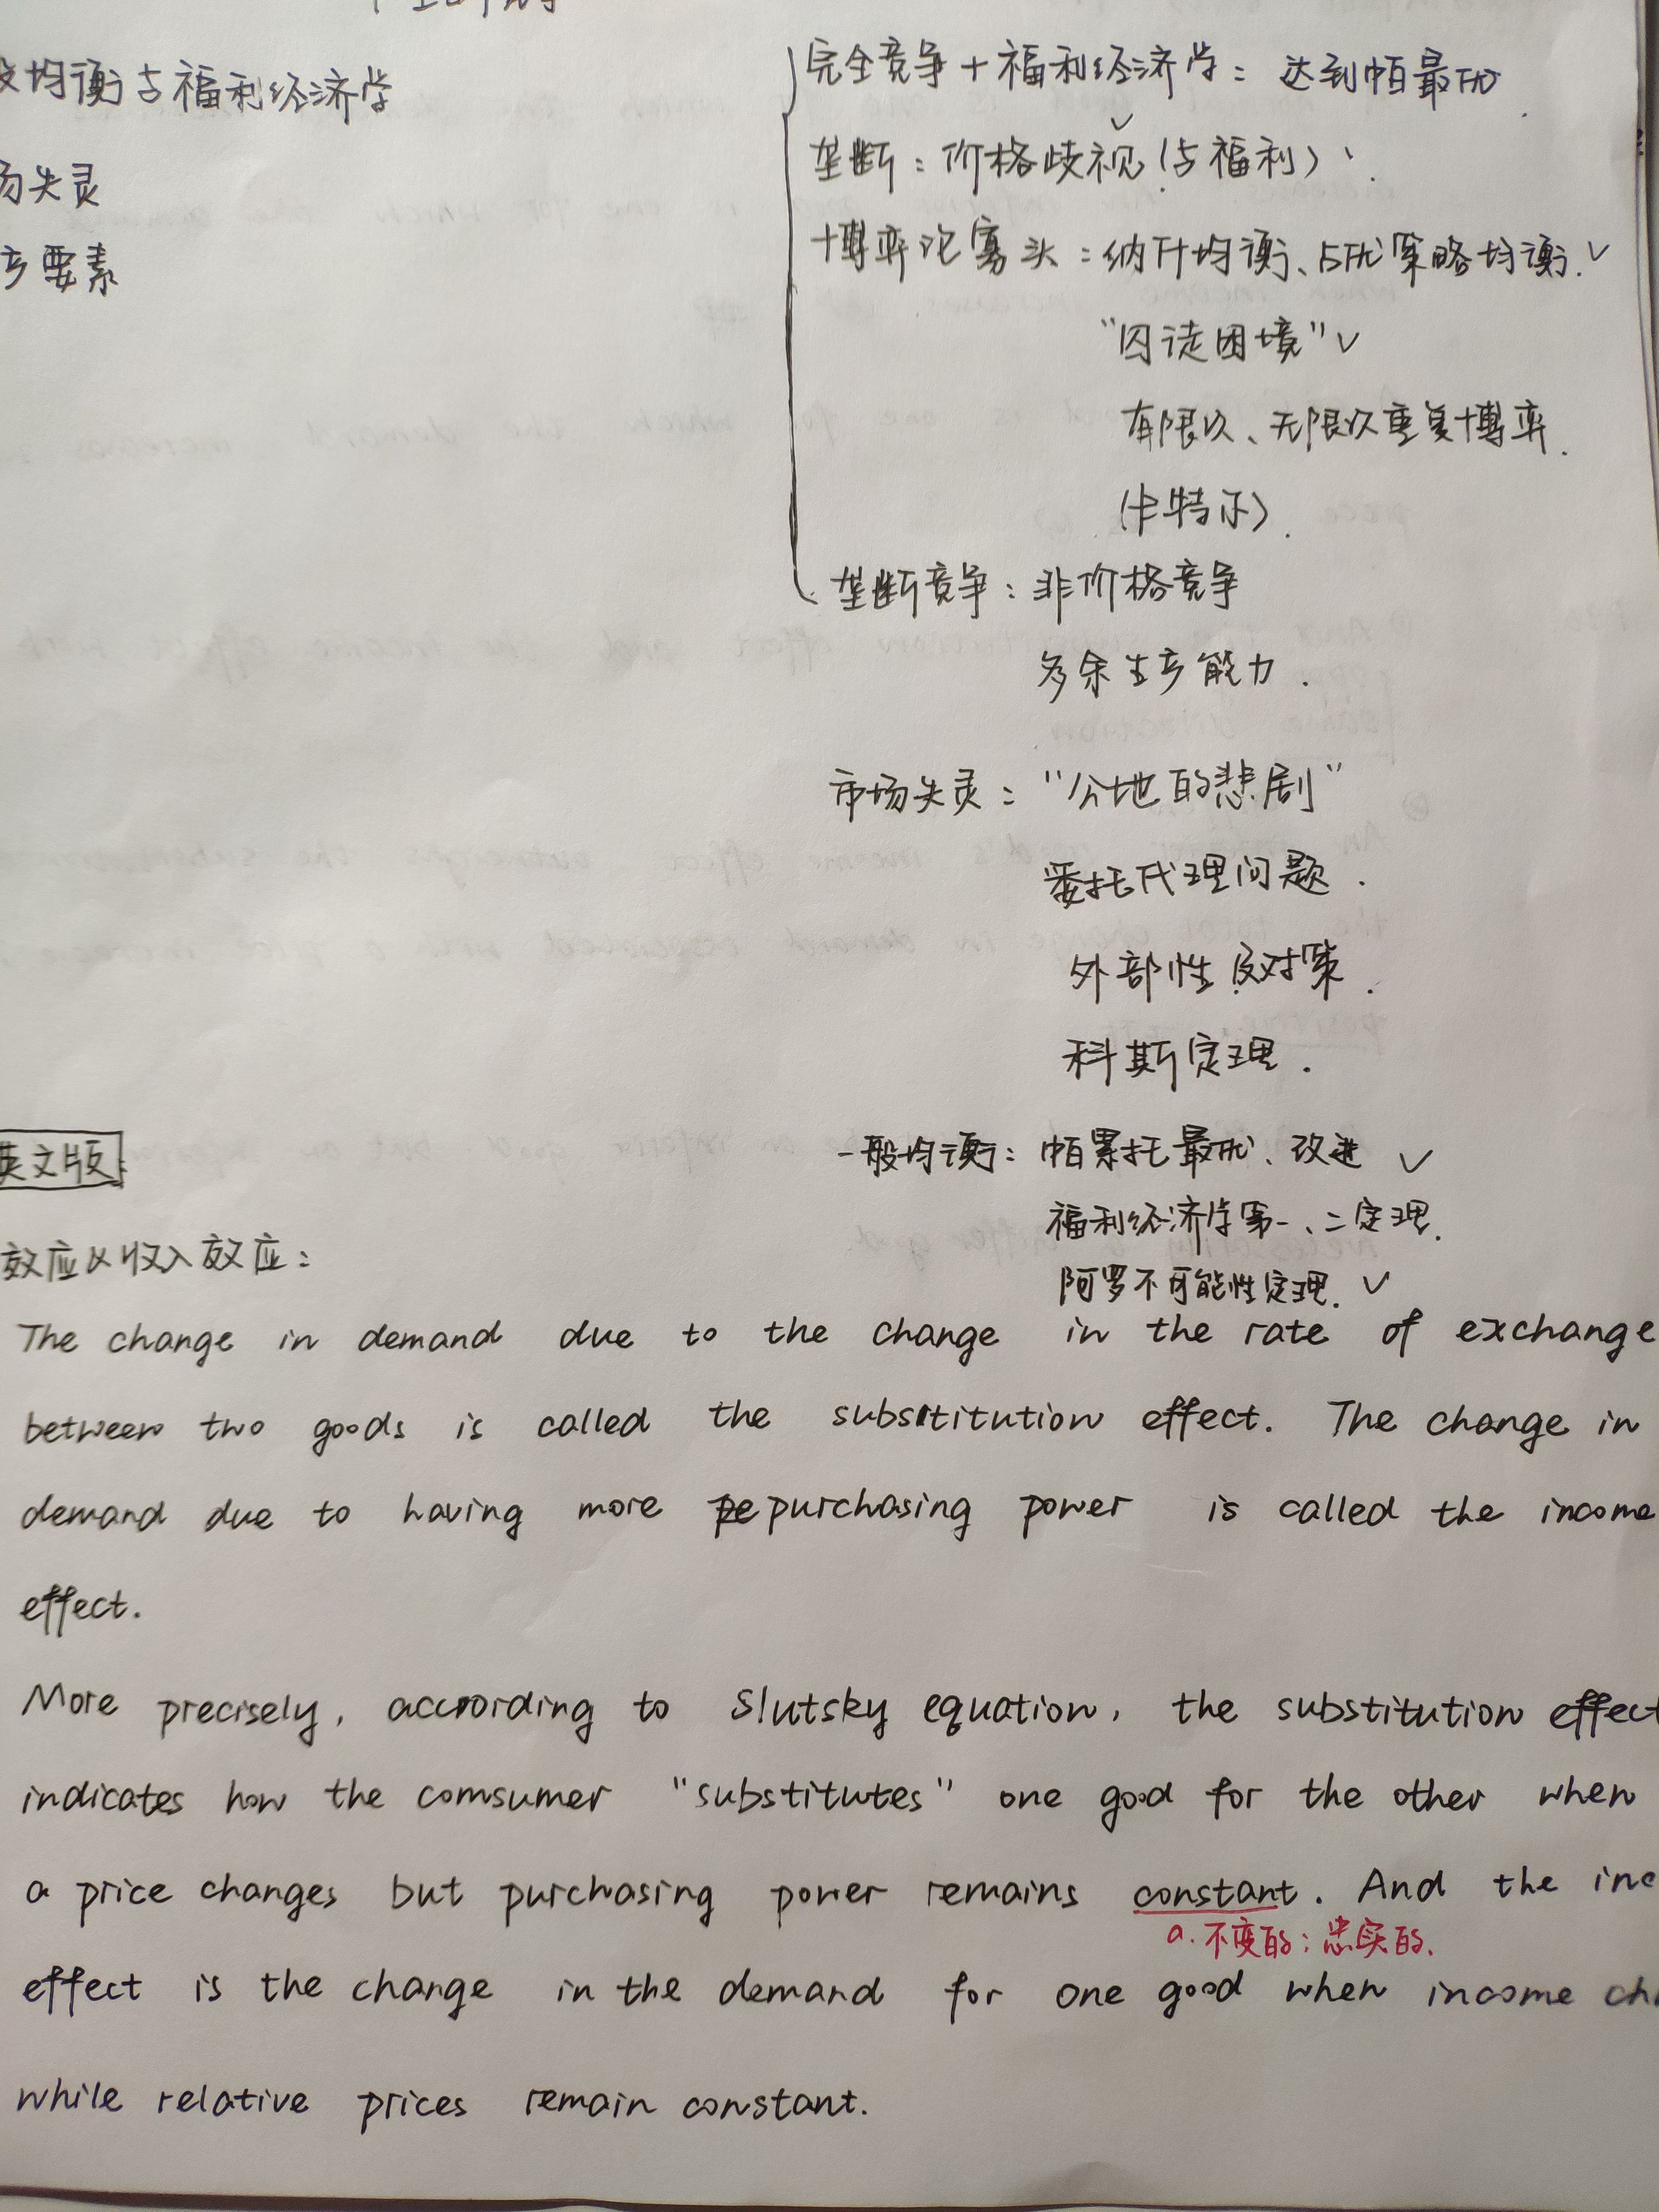 均衡与福利经济学
失灵
要素
完全竞争+福利经济学：达到帕最优
垄断：价格歧视(与福利)
博弈论寡头：纳什均衡、占优策略均衡.✓
“囚徒困境”✓
有限次、无限次重复博弈.
(卡特尔).
垄断竞争：非价格竞争
多余生产能力.
市场失灵：“公地的悲剧”
委托代理问题.
外部性及对策.
科斯定理.
一般均衡：帕累托最优、改进 ✓
福利经济学第一、二定理.
阿罗不可能性定理.✓
英文版:
效应以收入效应：
The change in demand due to the change in the rate of exchange
between two goods is called the substitution effect. The change in
demand due to having more purchasing power is called the income
effect.
More precisely, according to Slutsky equation, the substitution effect
indicates how the comsumer "substitutes" one good for the other when
a price changes but purchasing power remains constant. And the inc
a. 不变的；忠实的.
effect is the change in the demand for one good when income ch
while relative prices remain constant.